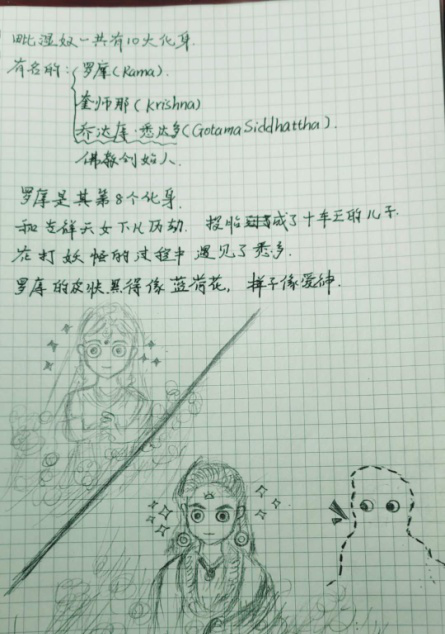 毗湿奴一共有10大化身.
有名的: 罗摩(Rama).
奎师那(Krishna)
乔达摩·悉达多(Gotama Siddhattha).
佛教创始人.
罗摩是其第8个化身.
和吉祥天女下凡历劫. 投胎成了十车王的儿子.
在打妖怪的过程中遇见了悉多.
罗摩的皮肤黑得像蓝荷花, 样子像爱神.